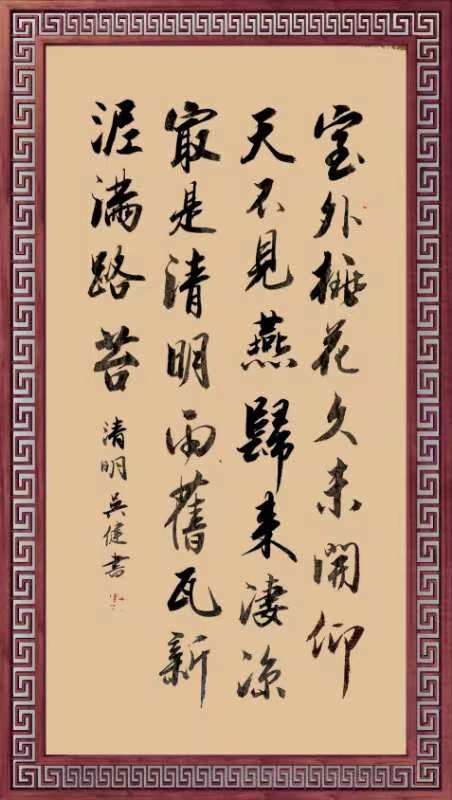 室外桃花久未開仰
天不見燕歸来凄涼
最是清明雨舊瓦新
泥满路苔
清明吴健書